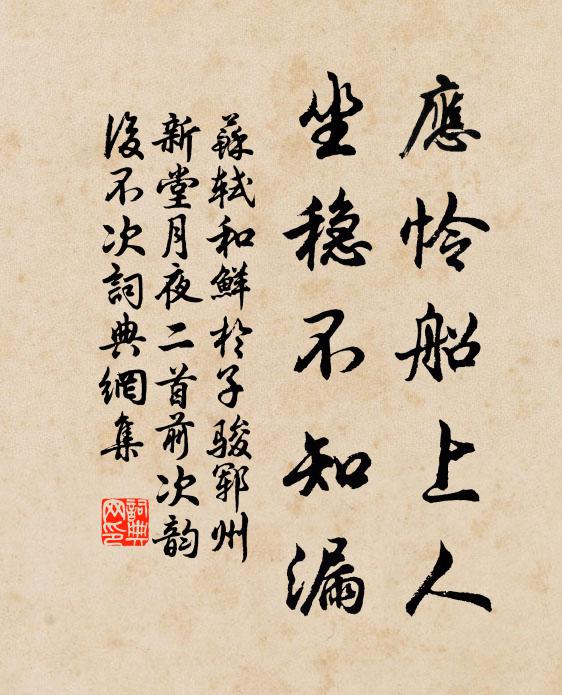 應怜船上人
坐穩不知漏
蘇軾和鮮於子駿鄆州
新堂月夜二首前次韵
後不次詞典網集
詞典
网印